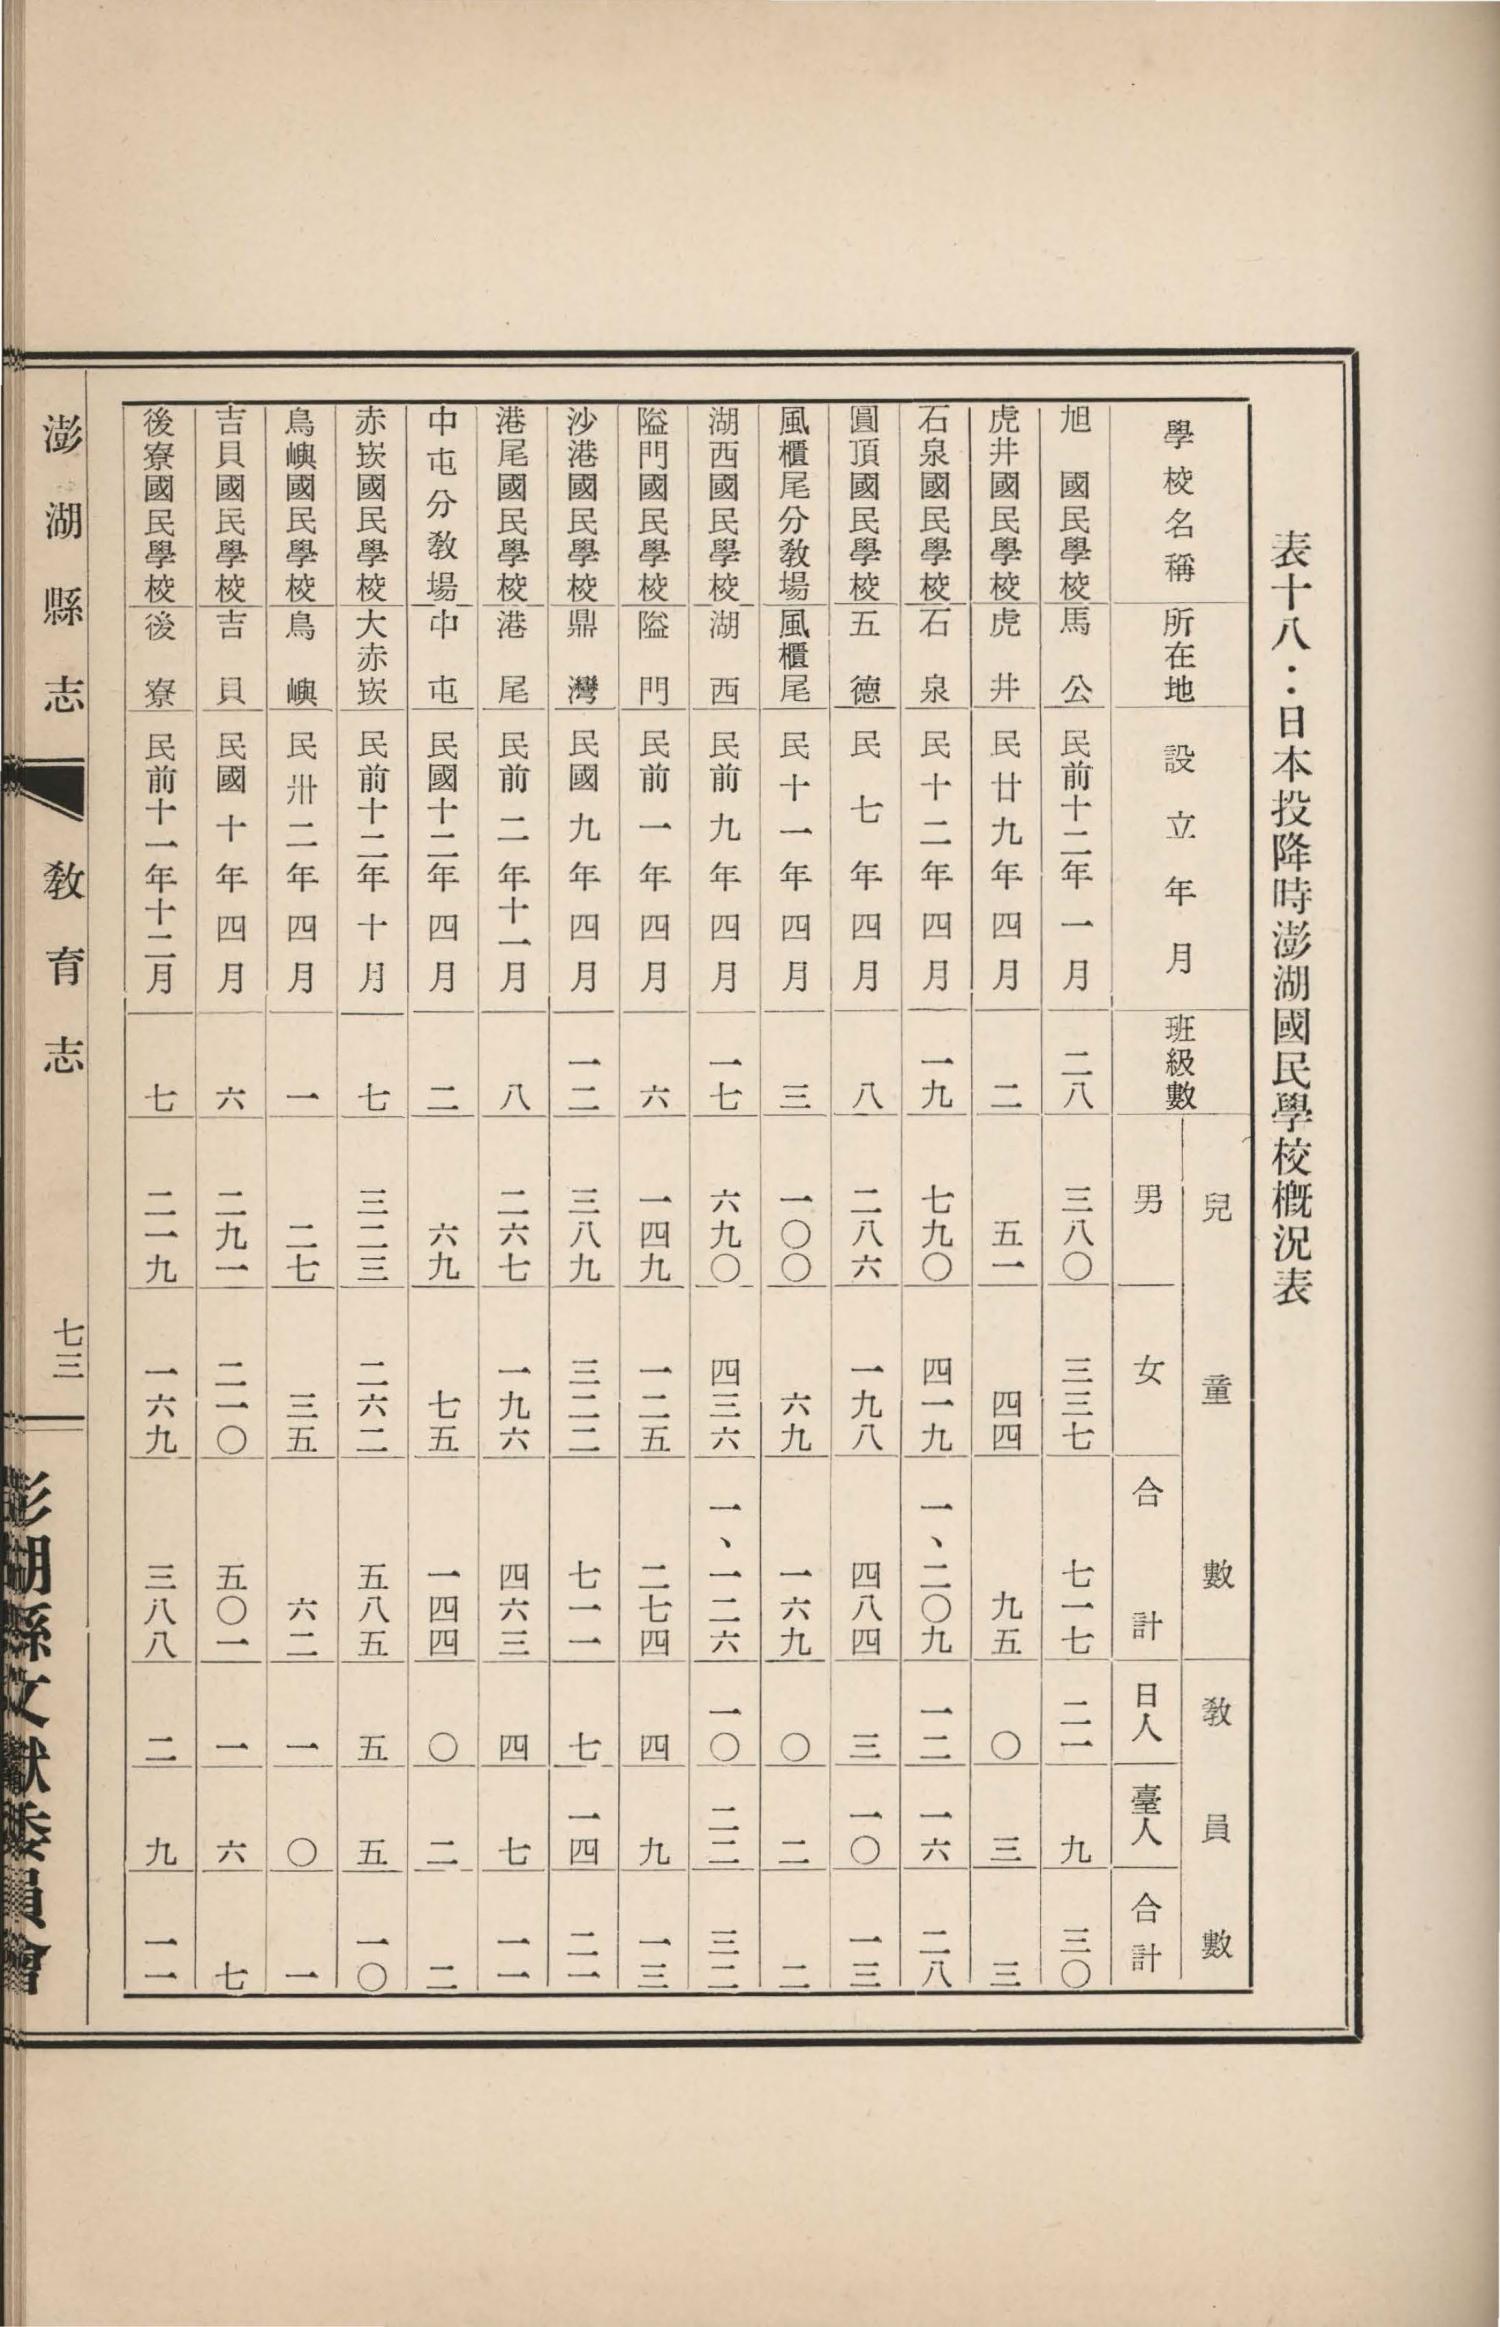 表十八：日本投降時澎湖國民學校概況表
學校名稱 所在地 設立年月 班級數 兒童數 男 女 合計 教員數 日人 臺人 合計
旭 國民學校 馬公 民前十二年一月 二八 三八〇 三三七 七一七 二一 九 三〇
虎井國民學校 虎井 民廿九年四月 二 五一 四四 九五 〇 三 三
石泉國民學校 石泉 民十二年四月 一九 七九〇 四一九 一、二〇九 一二 一六 二八
圓頂國民學校 五德 民七年四月 八 二八六 一九八 四八四 三 一〇 一三
風櫃尾分教場 風櫃尾 民十一年四月 三 一〇〇 六九 一六九 〇 二 二
湖西國民學校 湖西 民前九年四月 一七 六九〇 四三六 一、一二六 一〇 二二 三二
隘門國民學校 隘門 民前一年四月 六 一四九 一二五 二七四 四 九 一三
沙港國民學校 鼎灣 民國九年四月 一二 三八九 三二二 七一一 七 一四 二一
港尾國民學校 港尾 民前二年十一月 八 二六七 一九六 四六三 四 七 一一
中屯分教場 中屯 民國十二年四月 二 六九 七五 一四四 〇 二 二
赤崁國民學校 大赤崁 民前十二年十月 七 三二三 二六二 五八五 五 五 一〇
鳥嶼國民學校 鳥嶼 民卅二年四月 一 二七 三五 六二 一 〇 一
吉貝國民學校 吉貝 民國十年四月 六 二九一 二一〇 五〇一 一 六 七
後寮國民學校 後寮 民前十一年十二月 七 二一九 一六九 三八八 二 九 一一
澎湖縣志 教育志 七三
澎湖縣文獻委員會